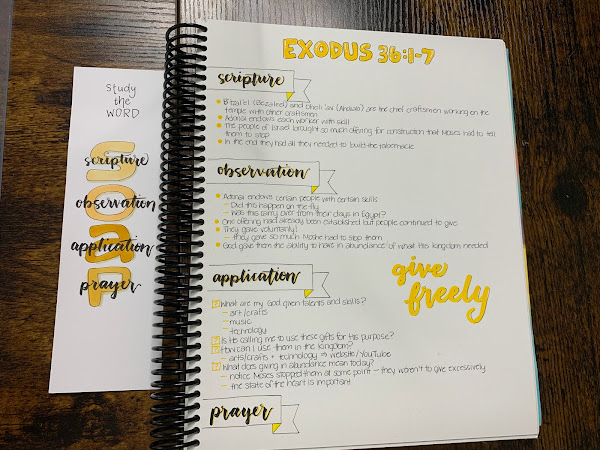 Study
the
WORD
scripture
observation
application
prayer
SOAP
EXODUS 36:1-7
scripture
B'tzal'el (Bezalel) and Oholi'av (Aholiab) are the chief craftsmen working on the
temple with other craftsmen
Adonai endows each worker with skill
The people of Israel brought so much offering for construction that Moses had to tell
them to stop
In the end they had all they needed to build the tabernacle
observation
Adonai endows certain people with certain skills
– Did this happen on the fly
– Was this carry over from their days in Egypt?
One offering had already been established but people continued to give
They gave voluntarily!
– they gave so much Moshe had to stop them
God gave them the ability to have in abundance of what his kingdom needed
application
? What are my God given talents and skills?
– art/crafts
– music
– technology
? Is He calling me to use these gifts for His purpose?
? How can I use them in the kingdom?
– arts/crafts + technology ⇒ website/YouTube
? What does giving in abundance mean today?
– notice Moses stopped them at some point – they weren't to give excessively
– the state of the heart is important
give
freely
prayer